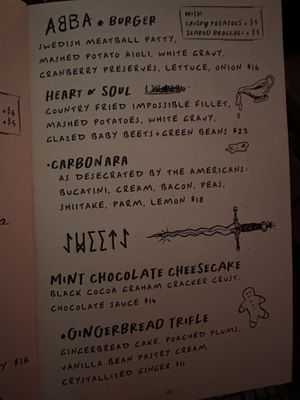 ABBA * BURGER
WITH:
CRISPY POTATOES + $3
SEARED BROCCOLI + $3
SWEDISH MEATBALL PATTY,
MASHED POTATO AIOLI, WHITE GRAVY,
CRANBERRY PRESERVES, LETTUCE, ONION $16
HEART OF SOUL
COUNTRY FRIED IMPOSSIBLE FILLET,
MASHED POTATOES, WHITE GRAVY,
GLAZED BABY BEETS + GREEN BEANS $23
•CARBONARA
AS DESECRATED BY THE AMERICANS:
BUCATINI, CREAM, BACON, PEAS,
SHIITAKE, PARM, LEMON $18
SWEETS
MINT CHOCOLATE CHEESECAKE
BLACK COCOA GRAHAM CRACKER CRUST,
CHOCOLATE SAUCE $14
*GINGERBREAD TRIFLE
GINGERBREAD CAKE, POACHED PLUMS,
VANILLA BEAN PASTRY CREAM,
CRYSTALLIZED GINGER $11
+ $6
$16